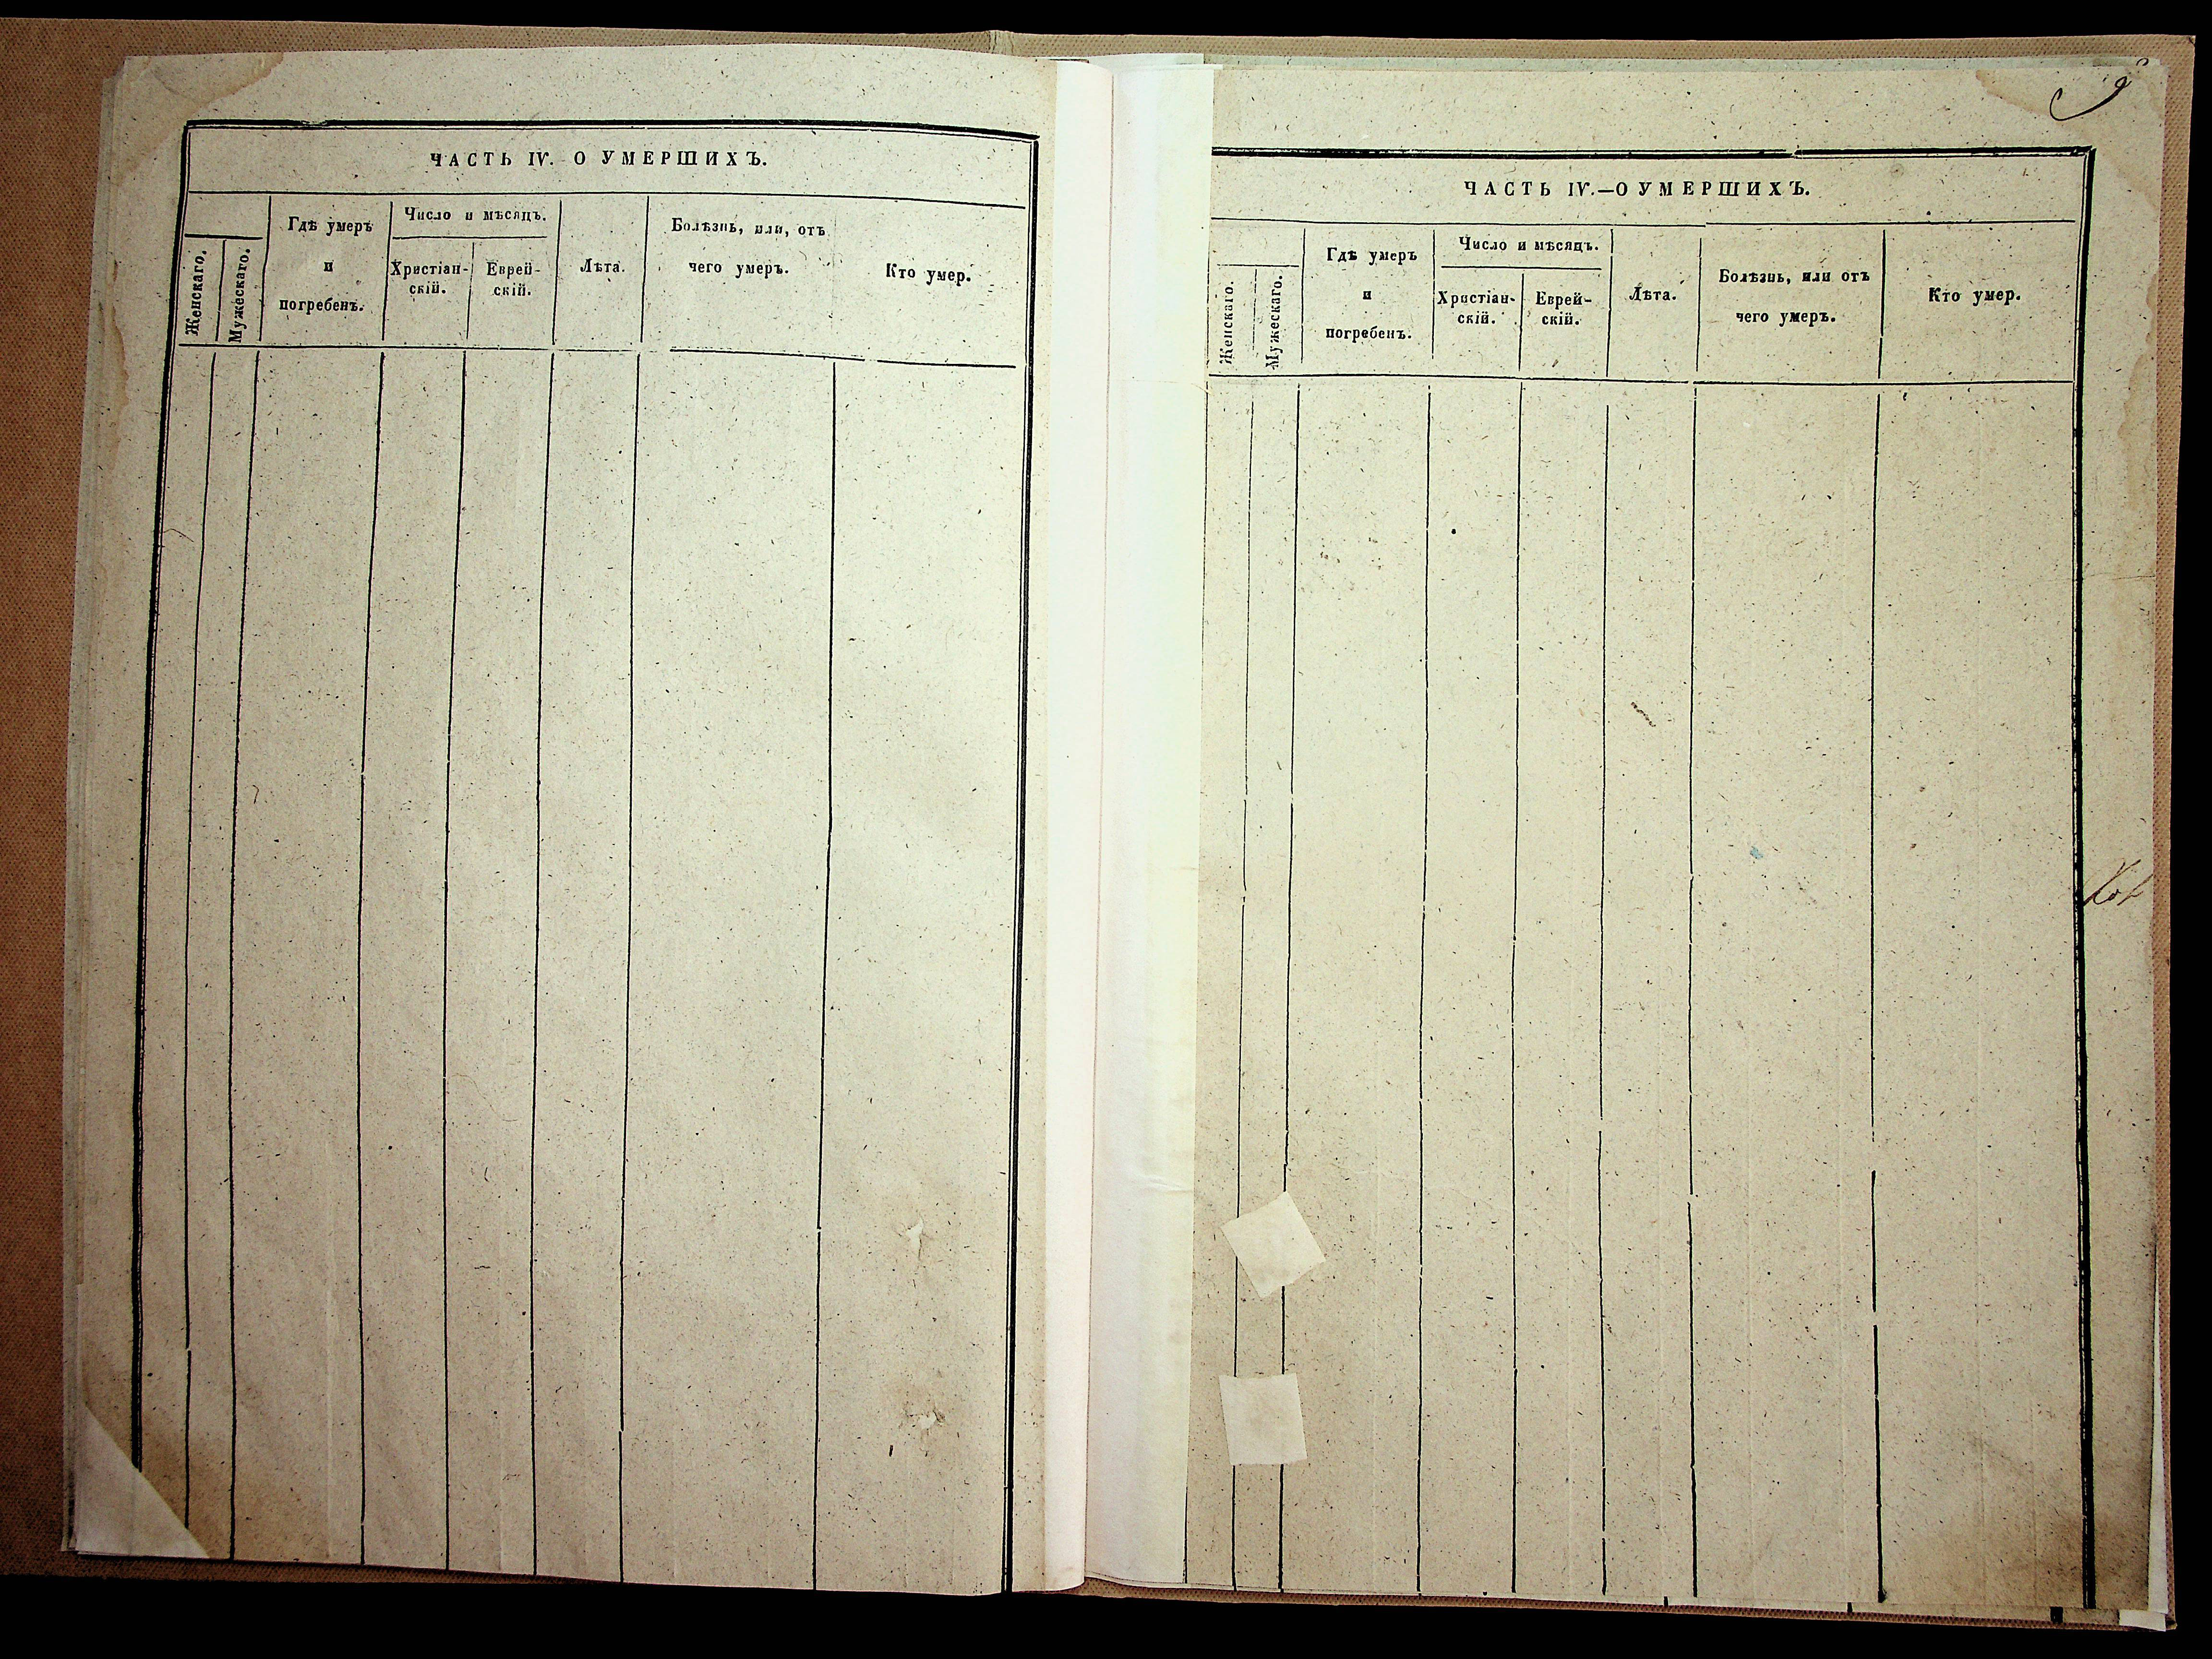 ЧАСТЬ IV. О УМЕРШИХЪ.
Женскаго.
Мужескаго.
Гдѣ умеръ
и
погребенъ.
Число и мѣсяцъ.
Христіан-
скій.
Еврей-
скій.
Лѣта.
Болѣзнь, или, отъ
чего умеръ.
Кто умер.
9
ЧАСТЬ IV.—О УМЕРШИХЪ.
Женскаго.
Мужескаго.
Гдѣ умеръ
и
погребенъ.
Число и мѣсяцъ.
Христіан-
скій.
Еврей-
скій.
Лѣта.
Болѣзнь, или отъ
чего умеръ.
Кто умер.